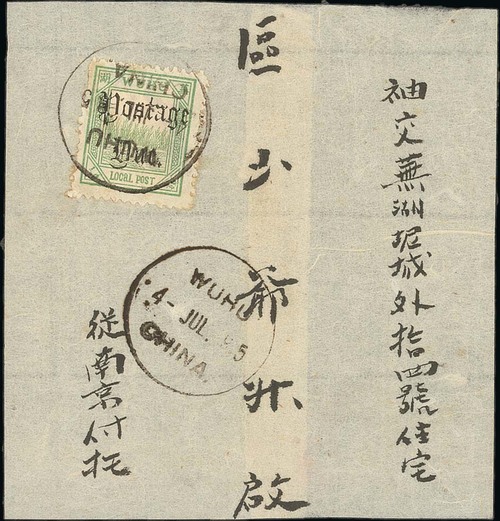 袖交蕪湖坭城外拾四號住宅
區少爺升啟
從南京付托
CHINA
Postage
Due.
LOCAL POST
WUHU
4- JUL. 95
CHINA.